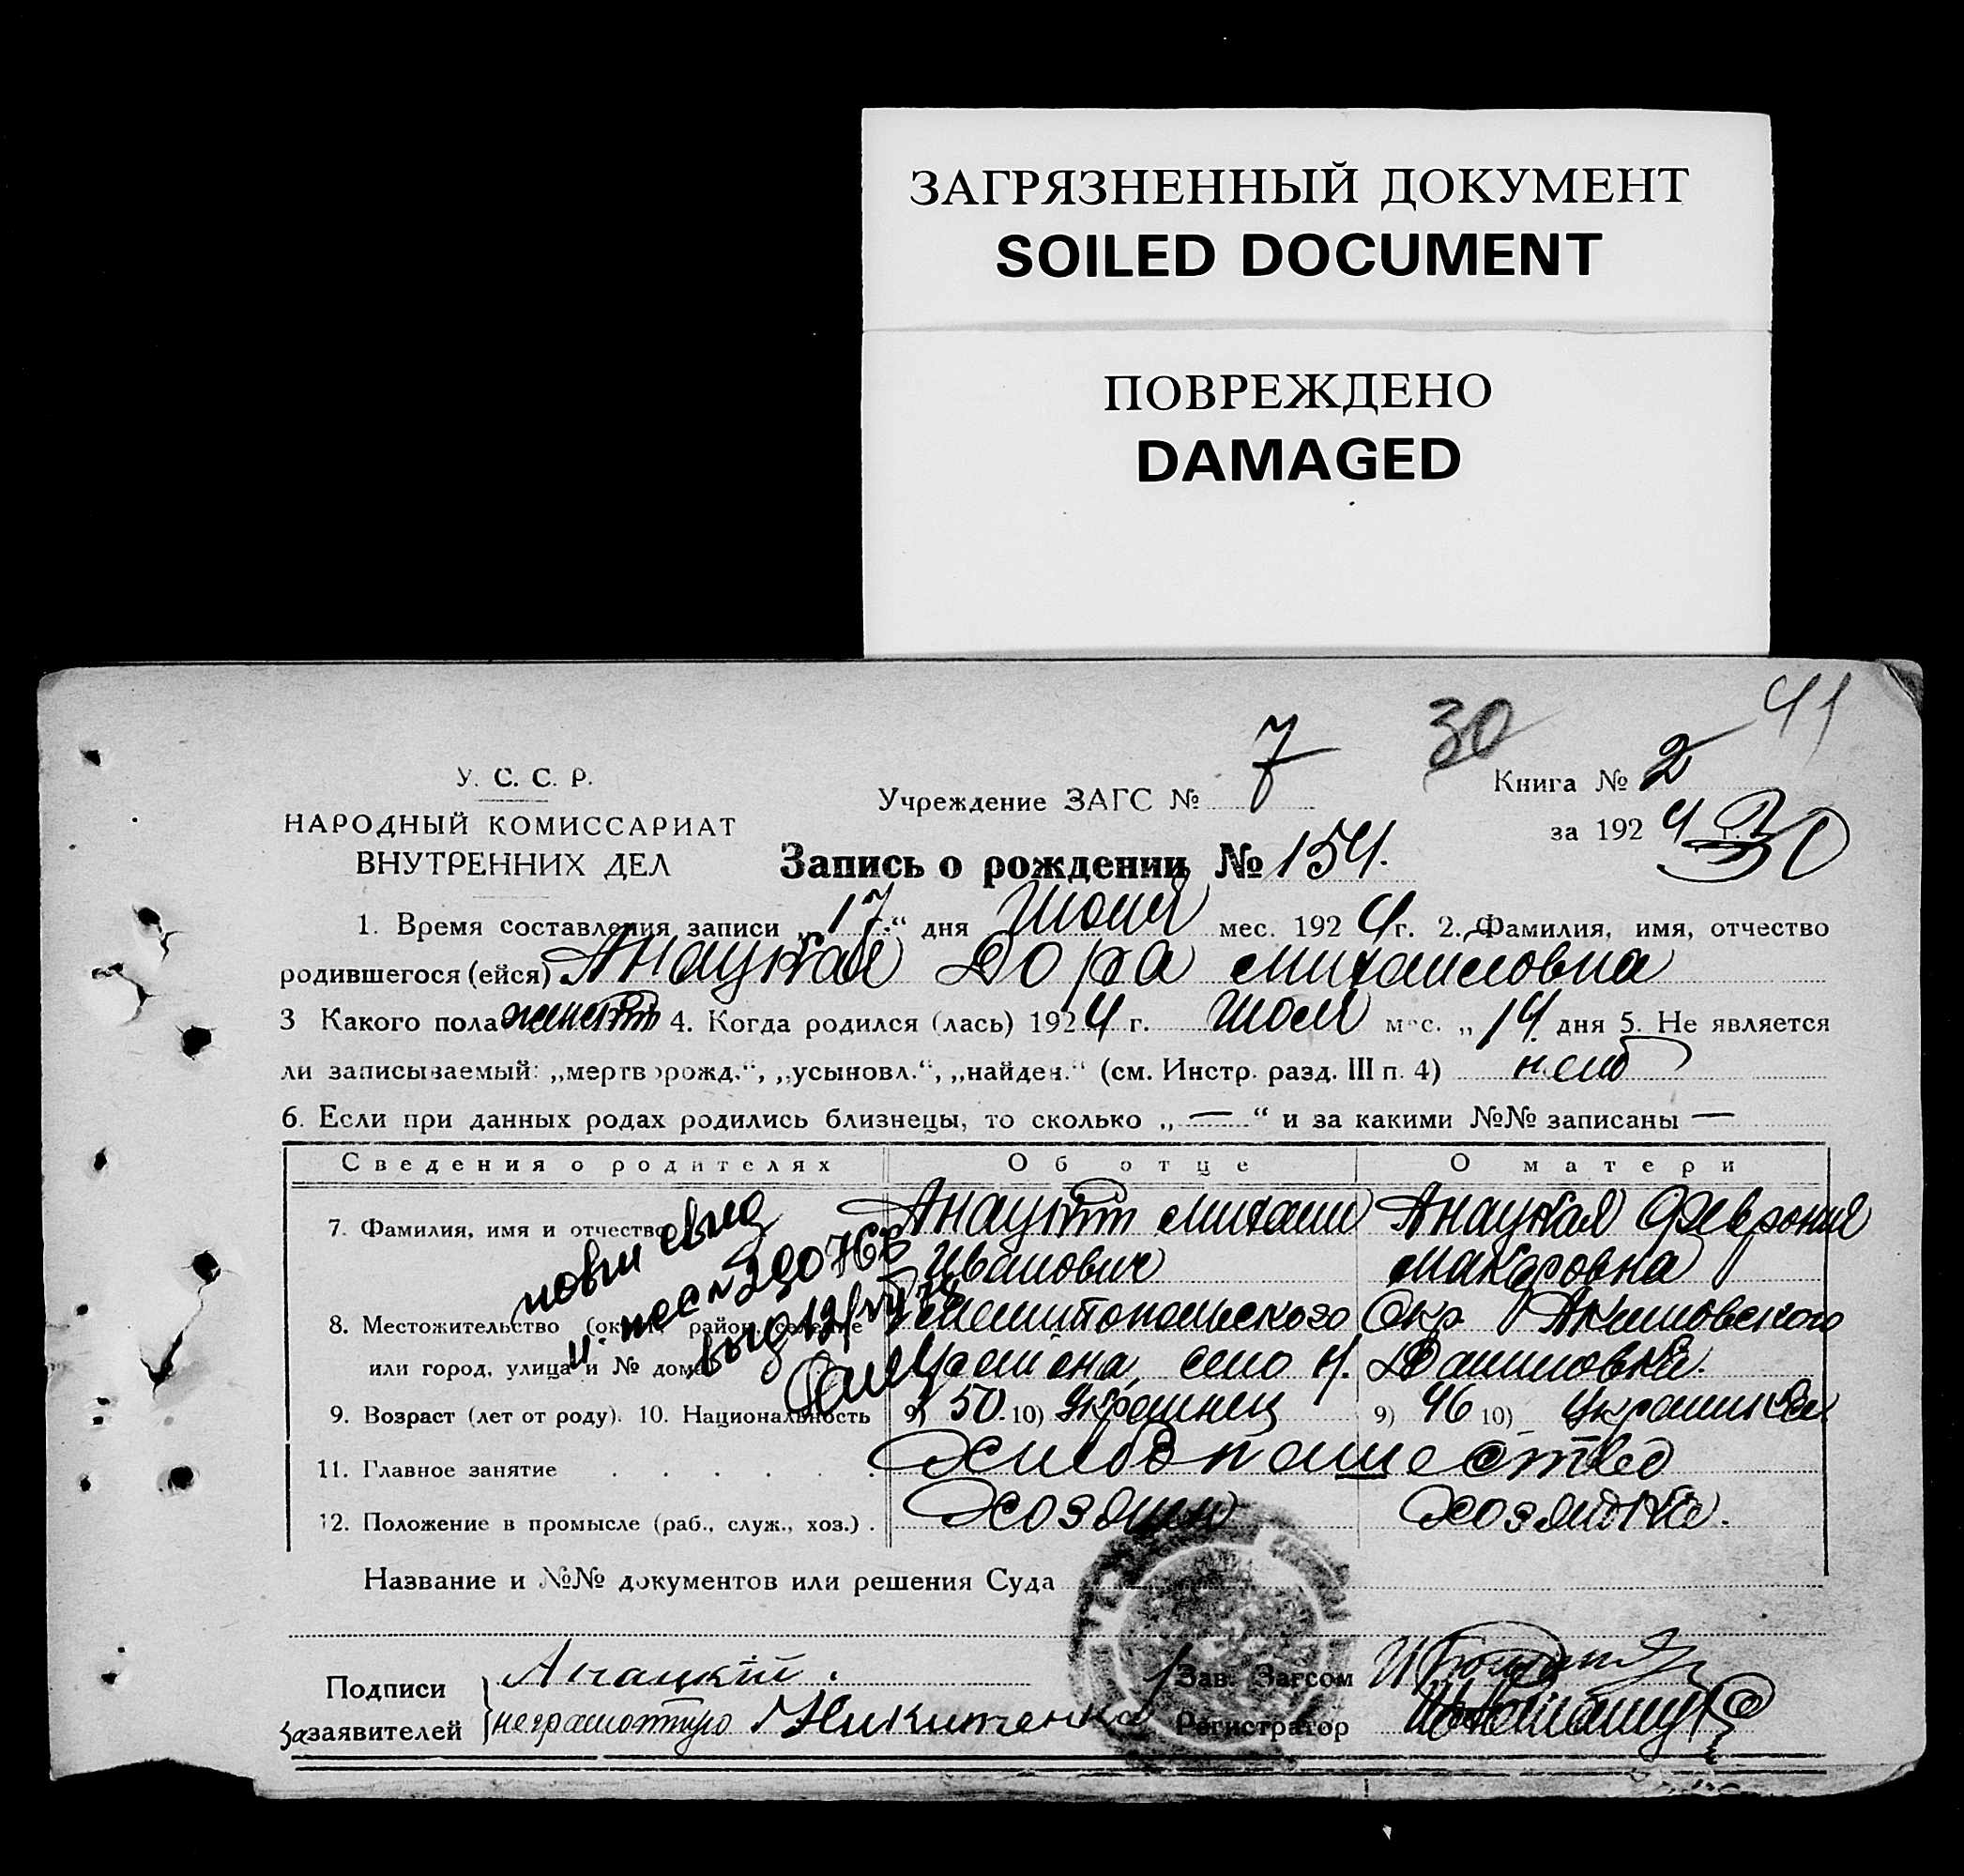 ЗАГРЯЗНЕННЫЙ ДОКУМЕНТ
SOILED DOCUMENT
ПОВРЕЖДЕНО
DAMAGED
41
30
У. С. С. Р.
НАРОДНЫЙ КОМИССАРИАТ
ВНУТРЕННИХ ДЕЛ
Учреждение ЗАГС № 7
Книга № 2
за 1924 г.
30
Запись о рождении № 154.
1. Время составления записи „17.“ дня Июля мес. 1924 г. 2. Фамилия, имя, отчество
родившегося (ейся) Анацкая Дора Михаиловна
3 Какого пола женский 4. Когда родился (лась) 1924 г. Июля мес. „14 дня 5. Не является
ли записываемый: „мертворожд.“, „усыновл.“, „найден.“ (см. Инстр. разд. III п. 4) нет
6. Если при данных родах родились близнецы, то сколько „—“ и за какими №№ записаны —
Сведения о родителях Об отце О матери
7. Фамилия, имя и отчество Анацкий Михаил Анацкая Феврония
Иванович Макаровна
8. Местожительство (округ, район, селение Мелитопольского Окр. Акимовского
или город, улица и № дома Района, село Н. Даниловка.
9. Возраст (лет от роду). 10. Национальность 9) 50. 10) Украинец 9) 46 10) Украинская
11. Главное занятие Хлебопашество
12. Положение в промысле (раб., служ., хоз.) . Хозяин Хозяйка.
Название и №№ документов или решения Суда
Подписи
заявителей
Анацкий.
За неграмотную Никитенко
Зав. Загсом
Регистратор